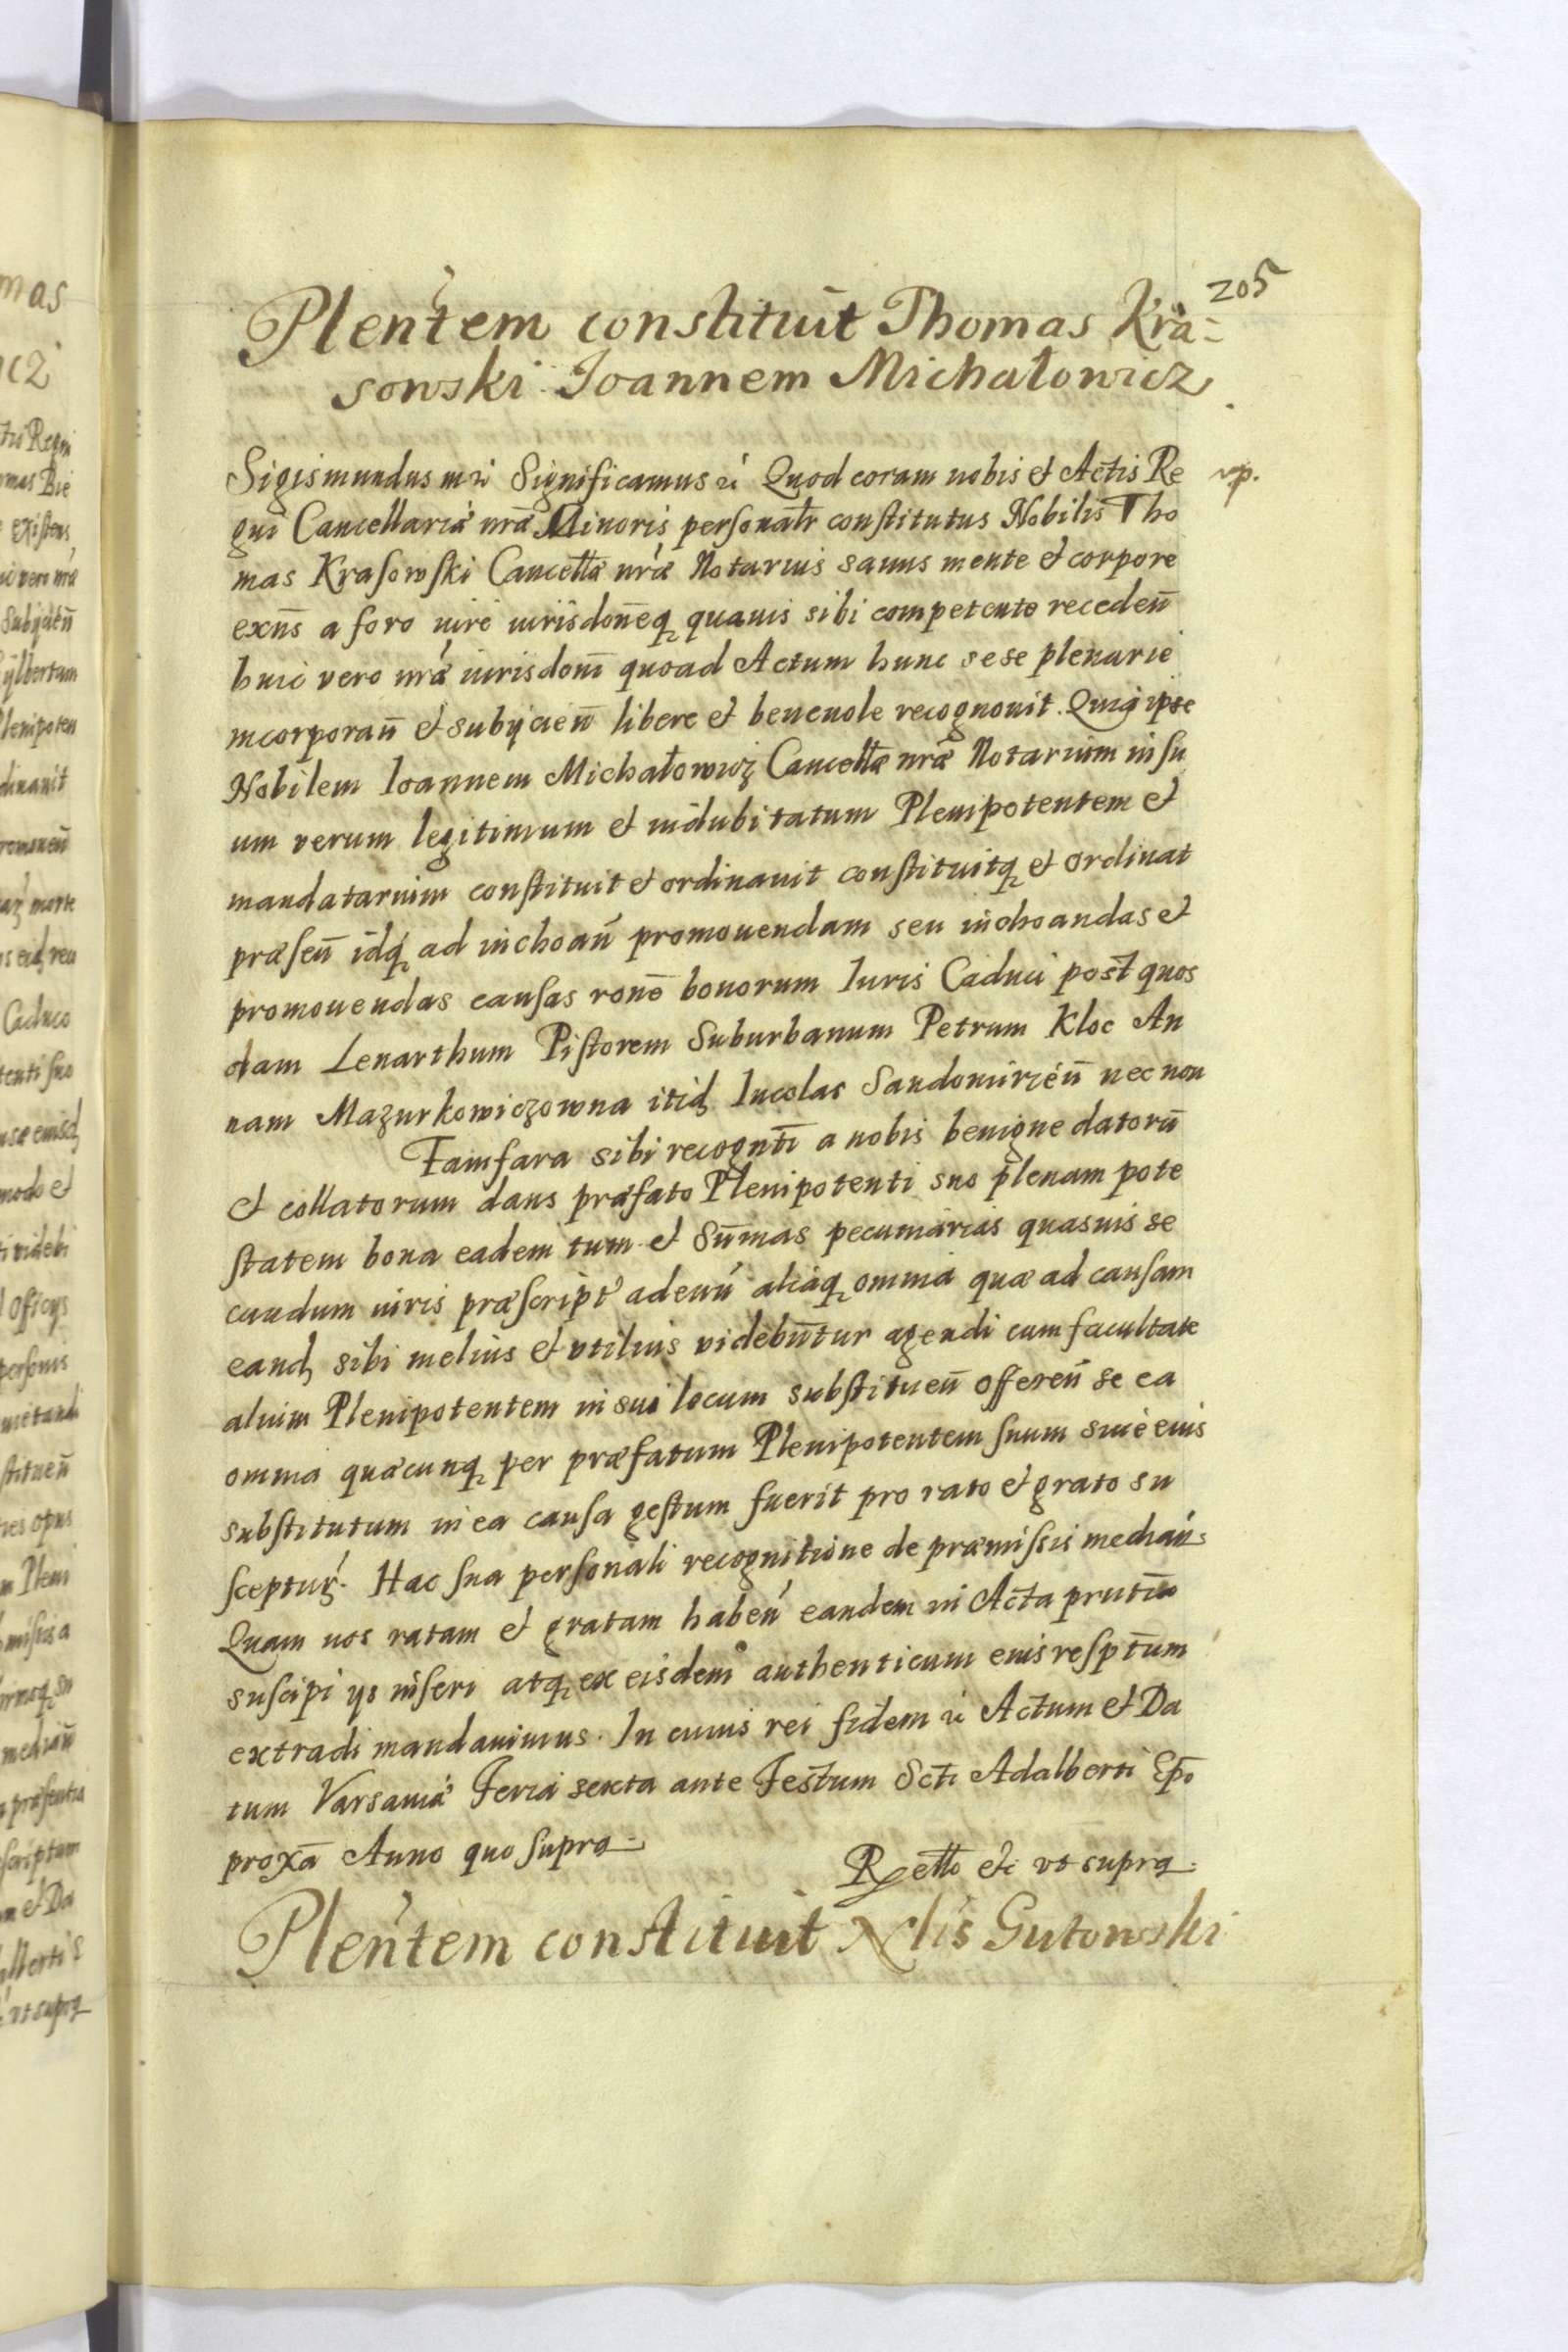 205
Plen̄tem constituit Thomas Kra-
sowski Joannem Michałowicz
Sigismundus Significamus Quod coram nobis et Actis Re
gni Cancellariæ nr̄æ Minoris personalr constitutus Nobilis Tho
mas Krasowski Cancellæ nr̄æ Notarius sanus mente et corpore
exn̄s a foro iure iurisdon̄eq quauis sibi competente receden̄
huic vero nr̄æ iurisdoni quoad Actum hunc sese plenarie
incorporan̄ et subijcien̄ libere et beneuole recognouit. Quia ipse
Nobilem Ioannem Michałowicz Cancellæ nr̄æ Notarium in su
um verum legitimum et indubitatum Plenipotentem et
mandatarium constituit et ordinauit constituitq et ordinat
præsen̄ idq ad inchoan̄ promouendam seu inchoandas et
promouendas causas ron̄e bonorum Iuris Caduci post quos
dam Lenarthum Pistorem Suburbanum Petrum Kloc An
nam Mazurkowiczowna itid Incolas Sandomirien̄ nec non
Famfara sibi recognti a nobis benigne datorū
et collatorum dans præfato Plenipotenti suo plenam pote
statem bona eadem tum et Sum̄as pecuniarias quasuis se
cundum iuris præscript adeun̄ aliaq omnia quæ ad causam
eand sibi melius et vtilius videbūtur agendi cum facultate
alium Plenipotentem in sui locum substituen̄ offeren̄ se ea
omnia quæcunq per præfatum Plenipotentem suum siue eius
substitutum in ea causa gestum fuerit pro rato et grato su
sceptur. Hac sua personali recognitione de præmissis median̄
Quam nos ratam et gratam haben̄ eandem in Acta prntia
suscipi ijs inseri atq ex eisdem authenticum eius resptum
extradi mandauimus. In cuius rei fidem Actum et Da
tum Varsauiæ Feria sexta ante Festum Scti Adalberti Epi
proxa Anno quo supra
R ettc vt supra
Plen̄tem constituit Nlis Gutowski